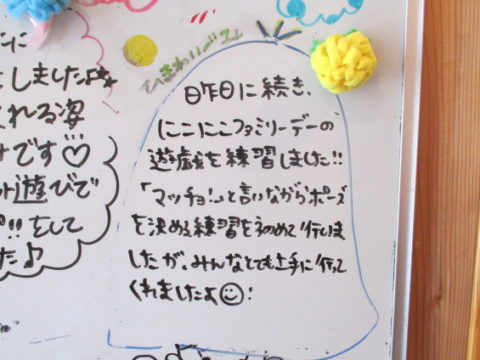 ひまわりぐみ
昨日に続き、
にこにこファミリーデーの
遊戯を練習しました!!
「マッチョ」と言いながらポーズ
を決める練習を初めて行いま
したが、みんなとても上手に行って
くれましたよ☺!
んに
としましたよ
くれる姿
です♡
遊びで
!!をして
た♪